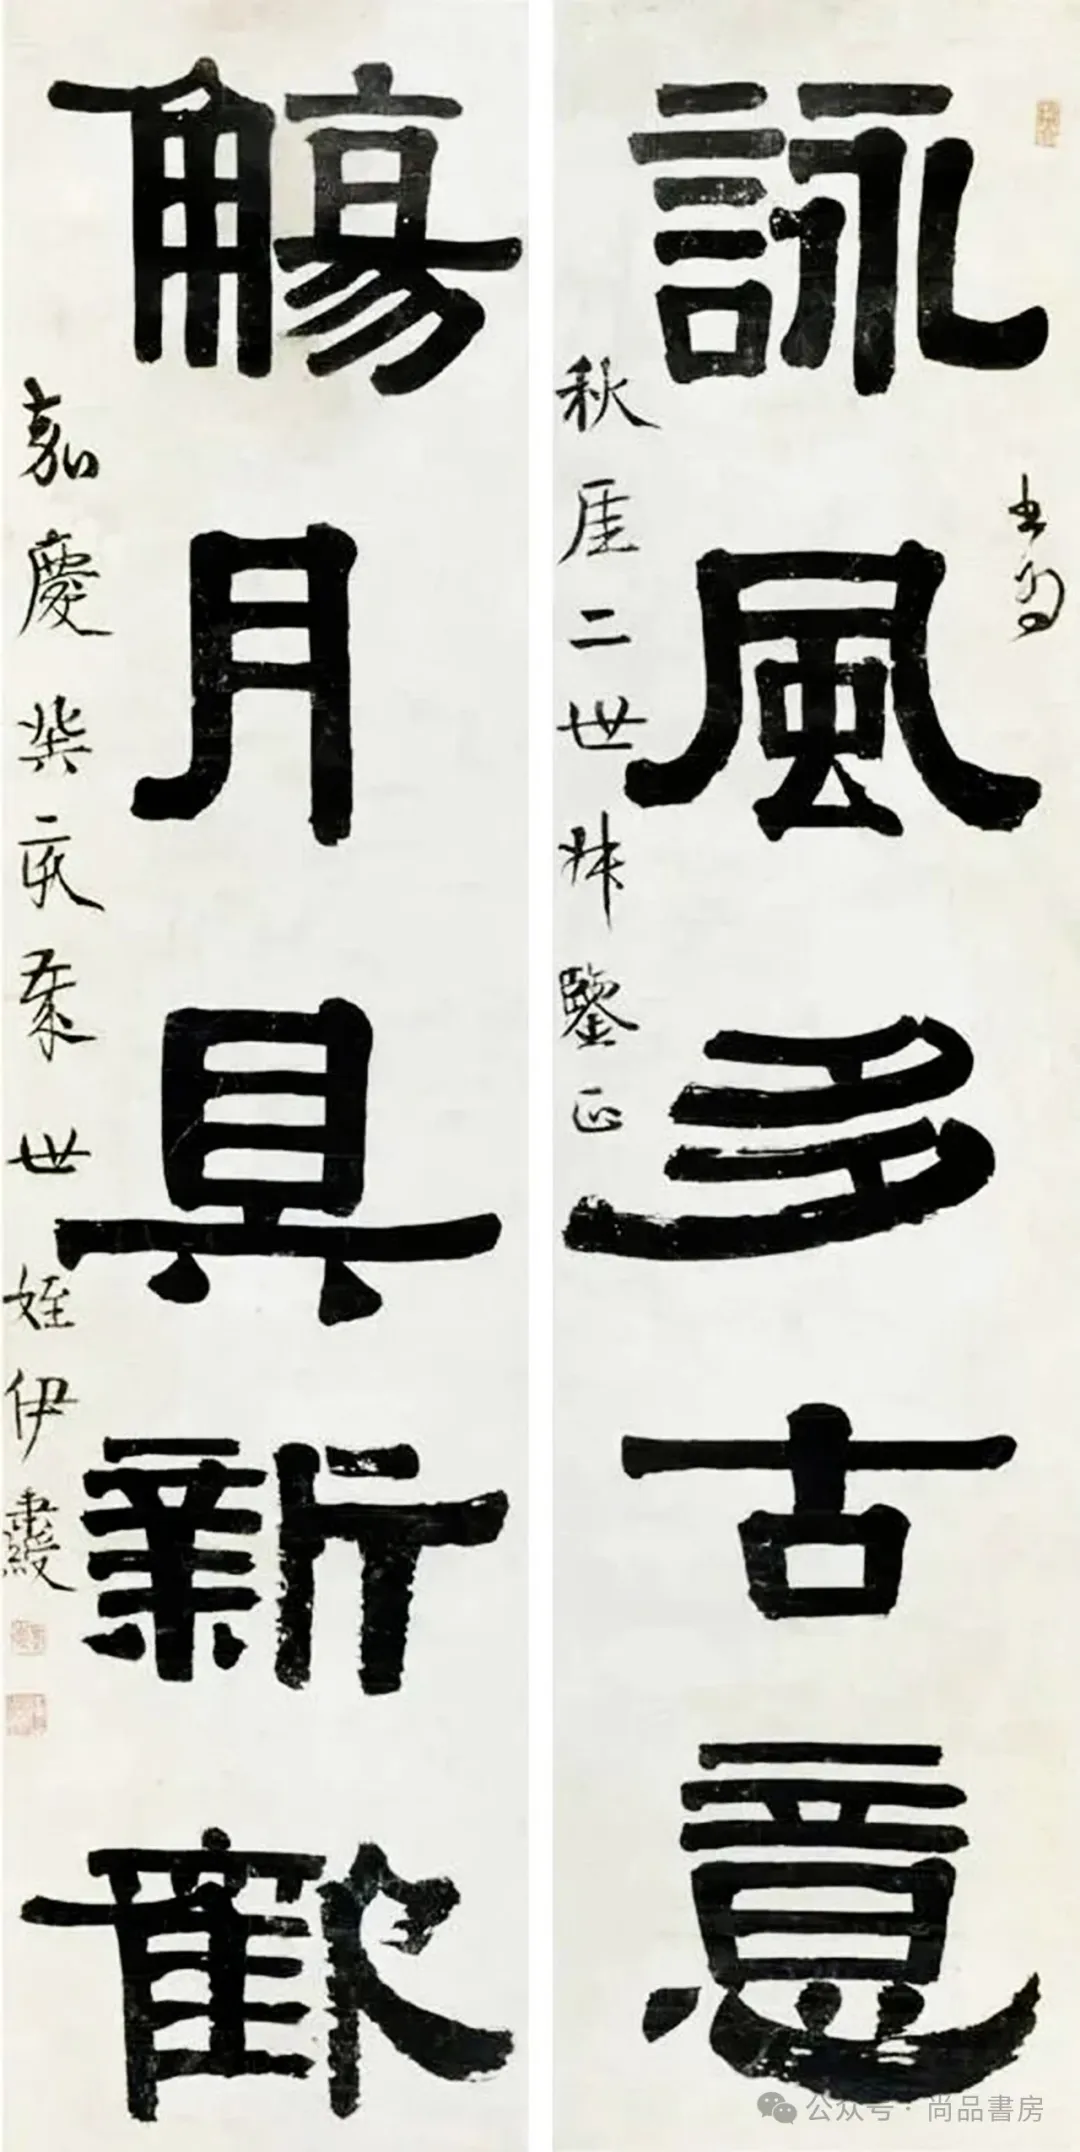 詠風多古意
書為
秋厓二世叔鑒正
觴月具新歡
嘉慶癸亥秊世姪伊秉綬
公众号·尚品書房